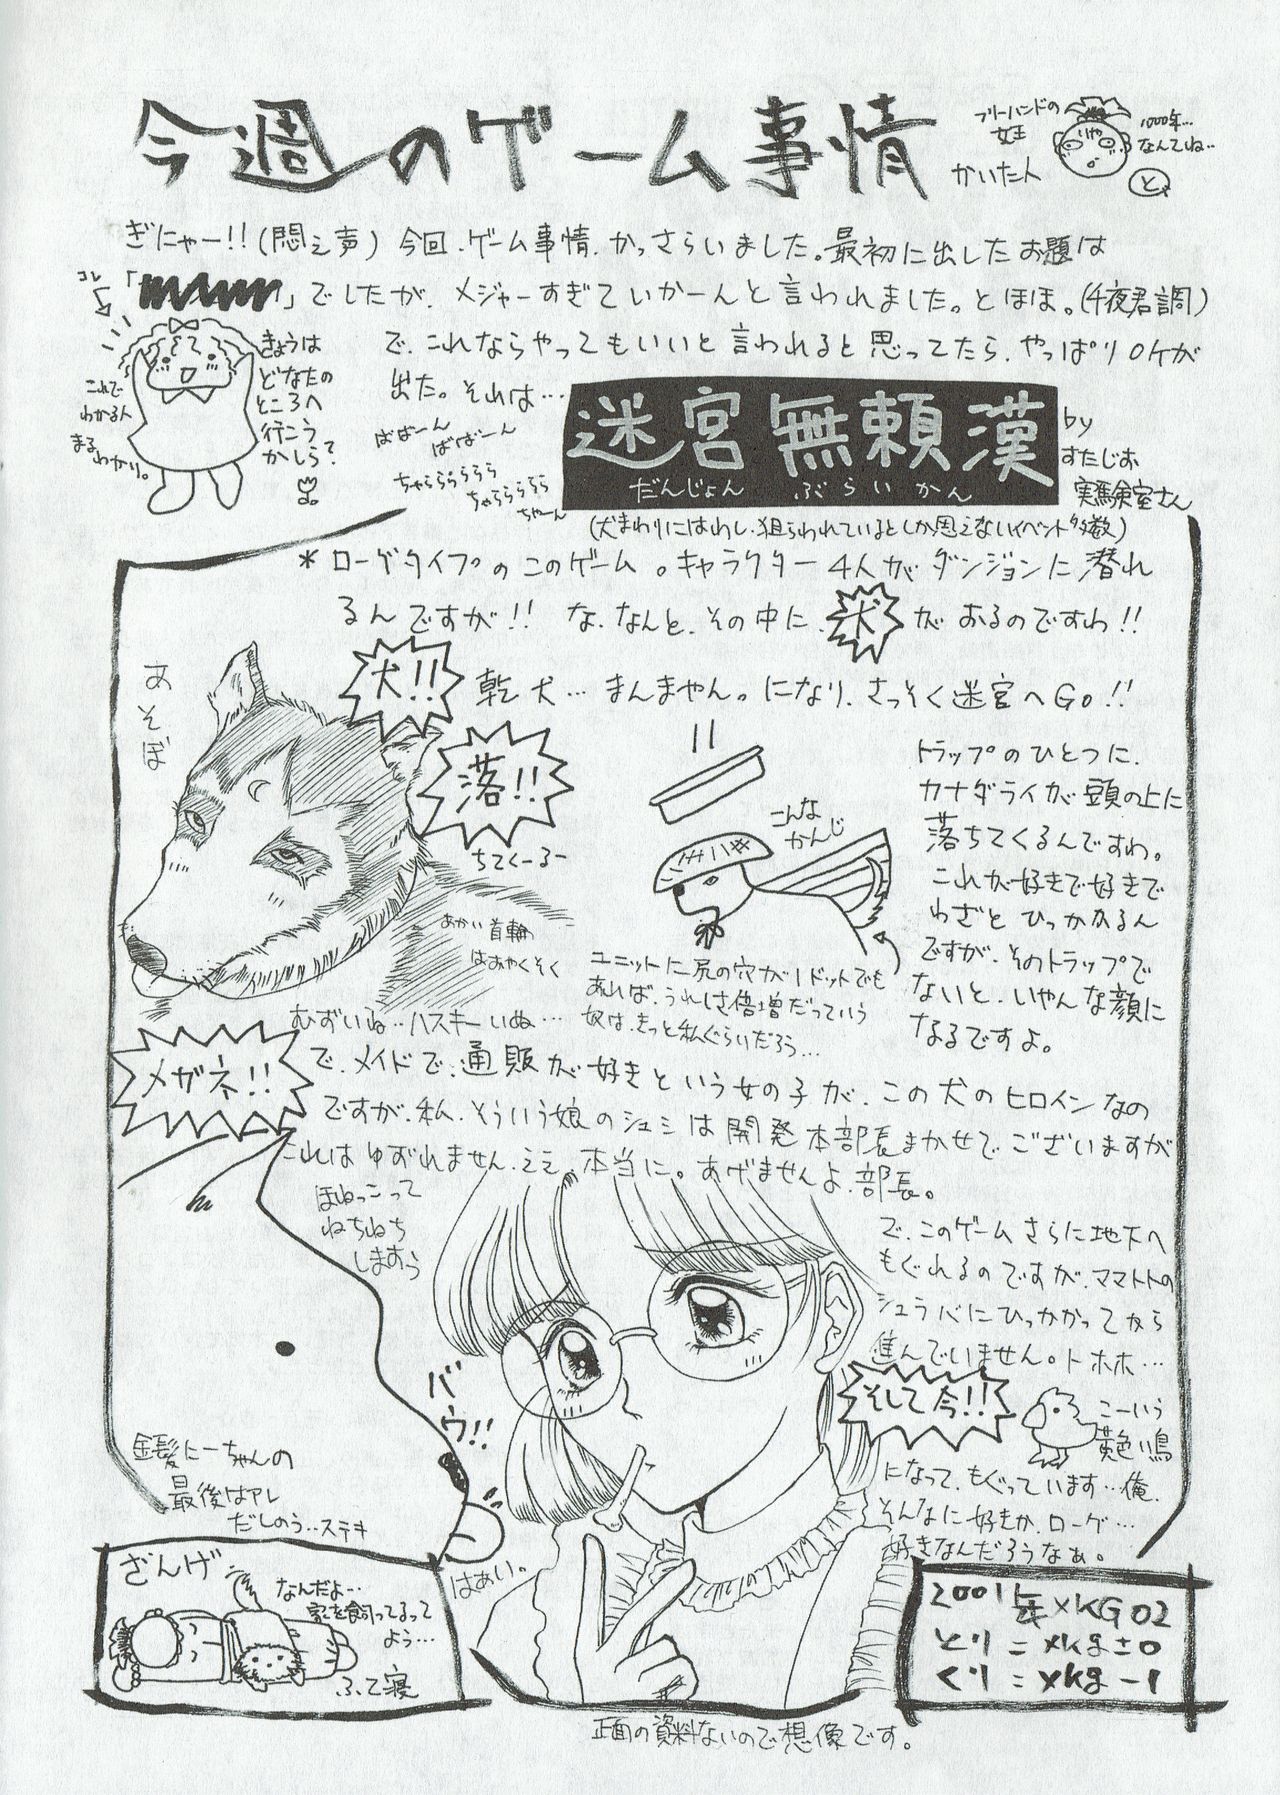 今週のゲーム事情
フリーハンドの
女王
かいた人
1000年…
なんてね…
ぎにゃー!!(悶え声) 今回、ゲーム事情、かっさらいました。最初に出したお題は
「　　　」でしたが、メジャーすぎていかーんと言われました。とほほ。(千夜君調)
コレ
これで
わかる人
まる
わかり。
きょうは
どなたの
ところへ
行こう
かしら?
で、これならやってもいいと言われると思ってたら、やっぱりOKが
出た。それは…
ばばーん
ばばーん
ちゃららららら
ちゃらららら
ちゃーん
迷宮無頼漢
だんじょん ぶらいかん
by
すたじお
実験室さん
(犬まわりにはわし、狙らわれているとしか思えないイベント多数)
*ローグタイプのこのゲーム。キャラクター4人がダンジョンに潜れ
るんですが!! な、なんと、その中に、犬が おるのですわ!!
あそぼ
犬!! 乾犬… まんまやん。になり、さっそく迷宮へGO!!
落!!
ちてくーるー
こんな
かんじ
トラップのひとつに、
カナダライが頭の上に
落ちてくるんですわ。
これが好きで好きで
わざと ひっかかるん
ですが、そのトラップで
ないと、いやんな顔に
なるですよ。
あかい首輪
はおやくそく
ユニットに尻の穴が1ドットでも
あれば、うれしさ倍増だっていう
奴は、きっと私ぐらいだろう…
むずいね…ハスキーいぬ…
メガネ!!
で、メイドで、通販が好きという女の子が、この犬のヒロインなの
ですが、私、そういう娘のシュミは開発本部長まかせで、ございますが
これはゆずれません、ええ、本当に。あげませんよ、部長。
ほねっこって
ねちねち
しますう
で、このゲーム さらに地下へ
もぐれるのですが、ママトトの
シュラバにひっかかってから
進んでいません。トホホ…
そして今!!
こーいう
黄色い鳥
になって、もぐっています…俺、
そんなに好きか、ローグ…
好きなんだろうなぁ。
バウ!!
はぁい。
金髪にーちゃんの
最後はアレ
だしのう…ステキ
ざんげ
なんだよ…
家を飼ってるって
よう…
ふて寝
2001年×KG02
とり=×kg±0
くり=×kg-1
正面の資料ないので想像です。